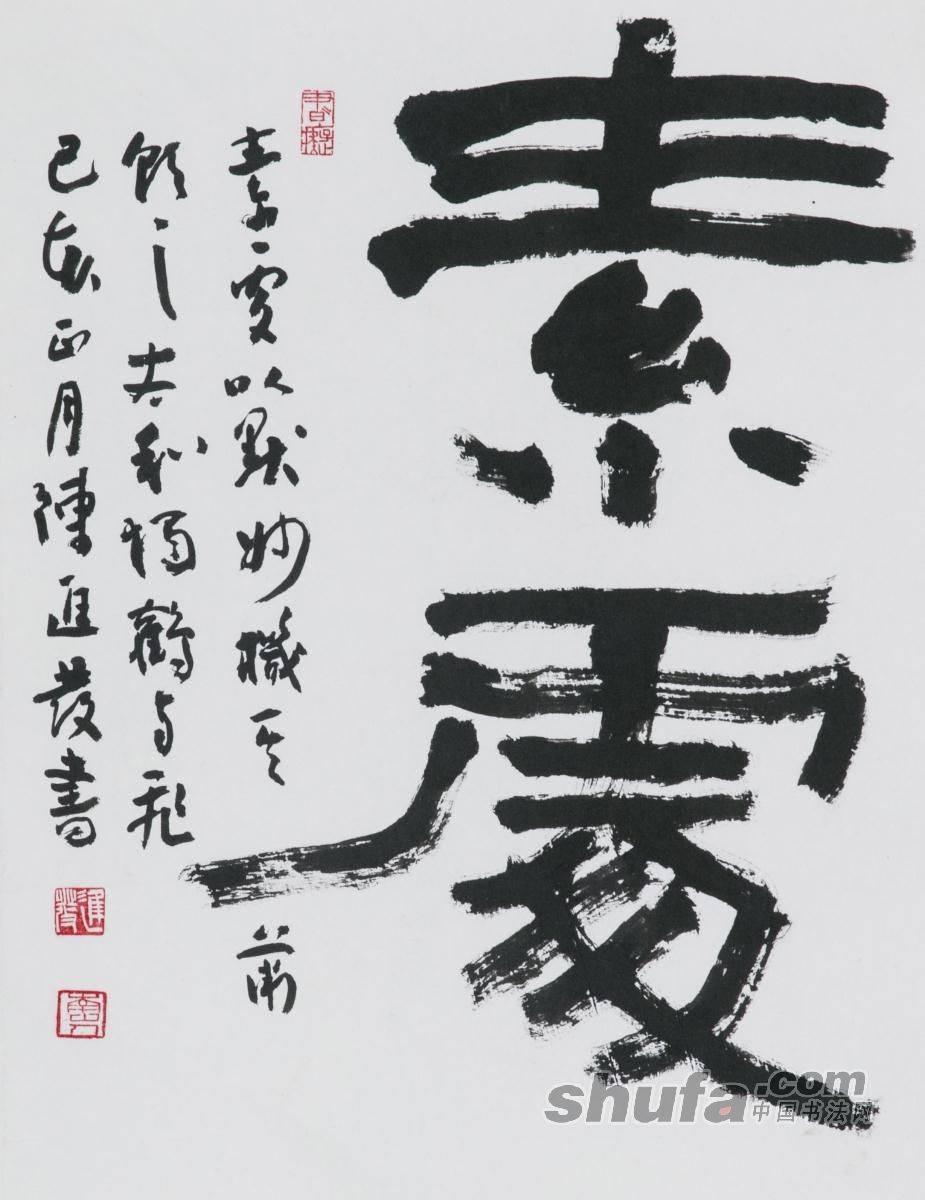 素處
素處以默妙機其微
飲之太和獨鶴與飛
己亥正月陳進發書
進發
shufa.com
中国书法网